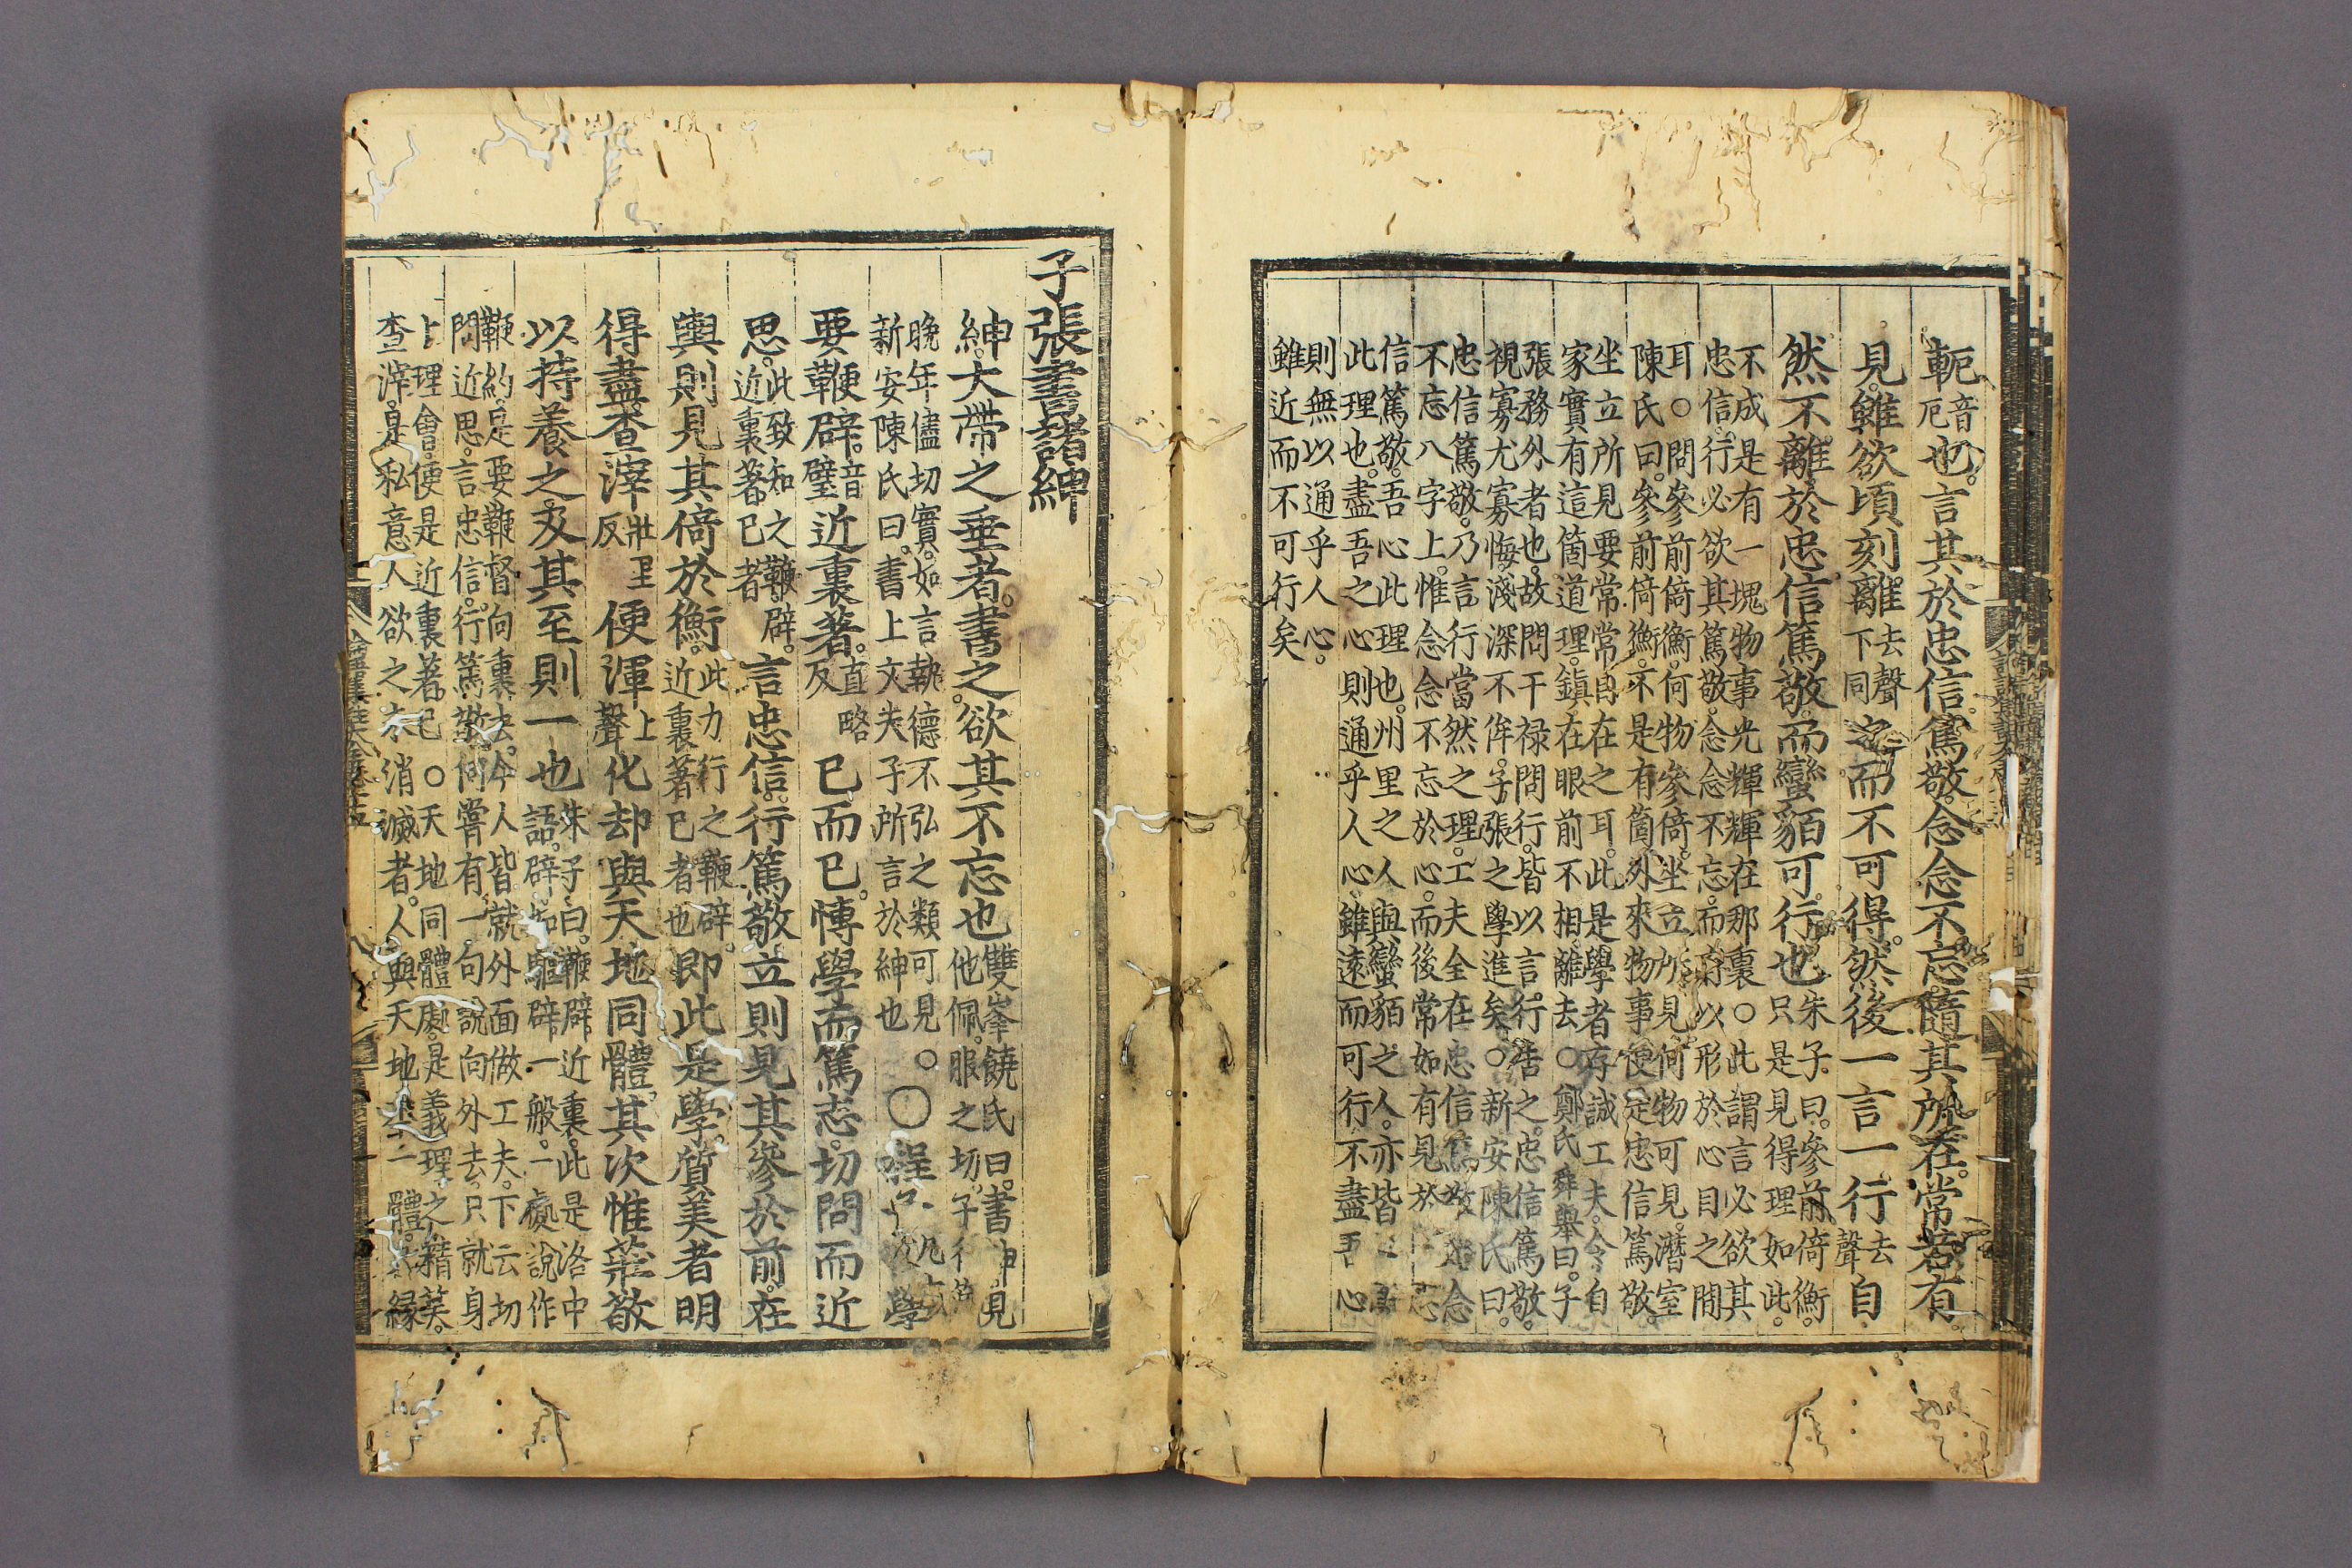 軛音厄也。言其於忠信篤敬。念念不忘。隨其所在。常若有
見。雖欲頃刻離去聲下同之而不可得。然後一言一行去聲自
然不離於忠信篤敬。而蠻貊可行也朱子曰。參前倚衡。只是見得理如此。
不成是有一塊物事光輝輝在那裏○此謂言必欲其
忠信。行必欲其篤敬。念念不忘。而有以形於心目之間
耳○問參前倚衡。何物參倚。坐立所見何物可見。潛室
陳氏曰。參前倚衡。不是有箇外來物事。便是忠信篤敬。
坐立所見要常常自在之耳。此是學者存誠工夫。令自
家實有這箇道理。鎮在眼前不相離去○鄭氏舜舉曰。子
張務外者也。故問干祿問行。皆以言行告之。忠信篤敬。
視寡尤寡悔淺深不侔。子張之學進矣○新安陳氏曰。
忠信篤敬。乃言行當然之理。工夫全在忠信篤敬念念
不忘八字上。惟念念不忘於心。而後常如有見於
信篤敬。吾心此理也。州里之人與蠻貊之人。亦皆
此理也。盡吾之心則通乎人心。雖遠而可行。不盡吾心
則無以通乎人心。
雖近而不可行矣
子張書諸紳
紳。大帶之垂者。書之。欲其不忘也雙峯饒氏曰。書紳見他佩服之切。子
晚年儘切實。如言執德不弘之類可見○
新安陳氏曰。書上文夫子所言於紳也○程子曰學
要鞭辟音璧近裏著直略反已而已。博學而篤志。切問而近
思。此致知之鞭辟。近裏著已者言忠信。行篤敬。立則見其參於前。在
輿則見其倚於衡。此力行之鞭辟。近裏著已者也即此是學。質美者明
得盡。查滓壯里反便渾上聲化却與天地同體。其次惟莊敬
以持養之。及其至則一也朱子曰。鞭辟近裏。此是洛中語。辟如驅辟一般。一處說作
鞭約。是要鞭督向裏去。今人皆就外面做工夫。下云切
問近思。言忠信。行篤敬。何嘗有一句說向外去。只就身
上理會。便是近裏著已○天地同體處。是義理之精英。
查滓。是私意人欲之未消滅者。人與天地本一體。緣